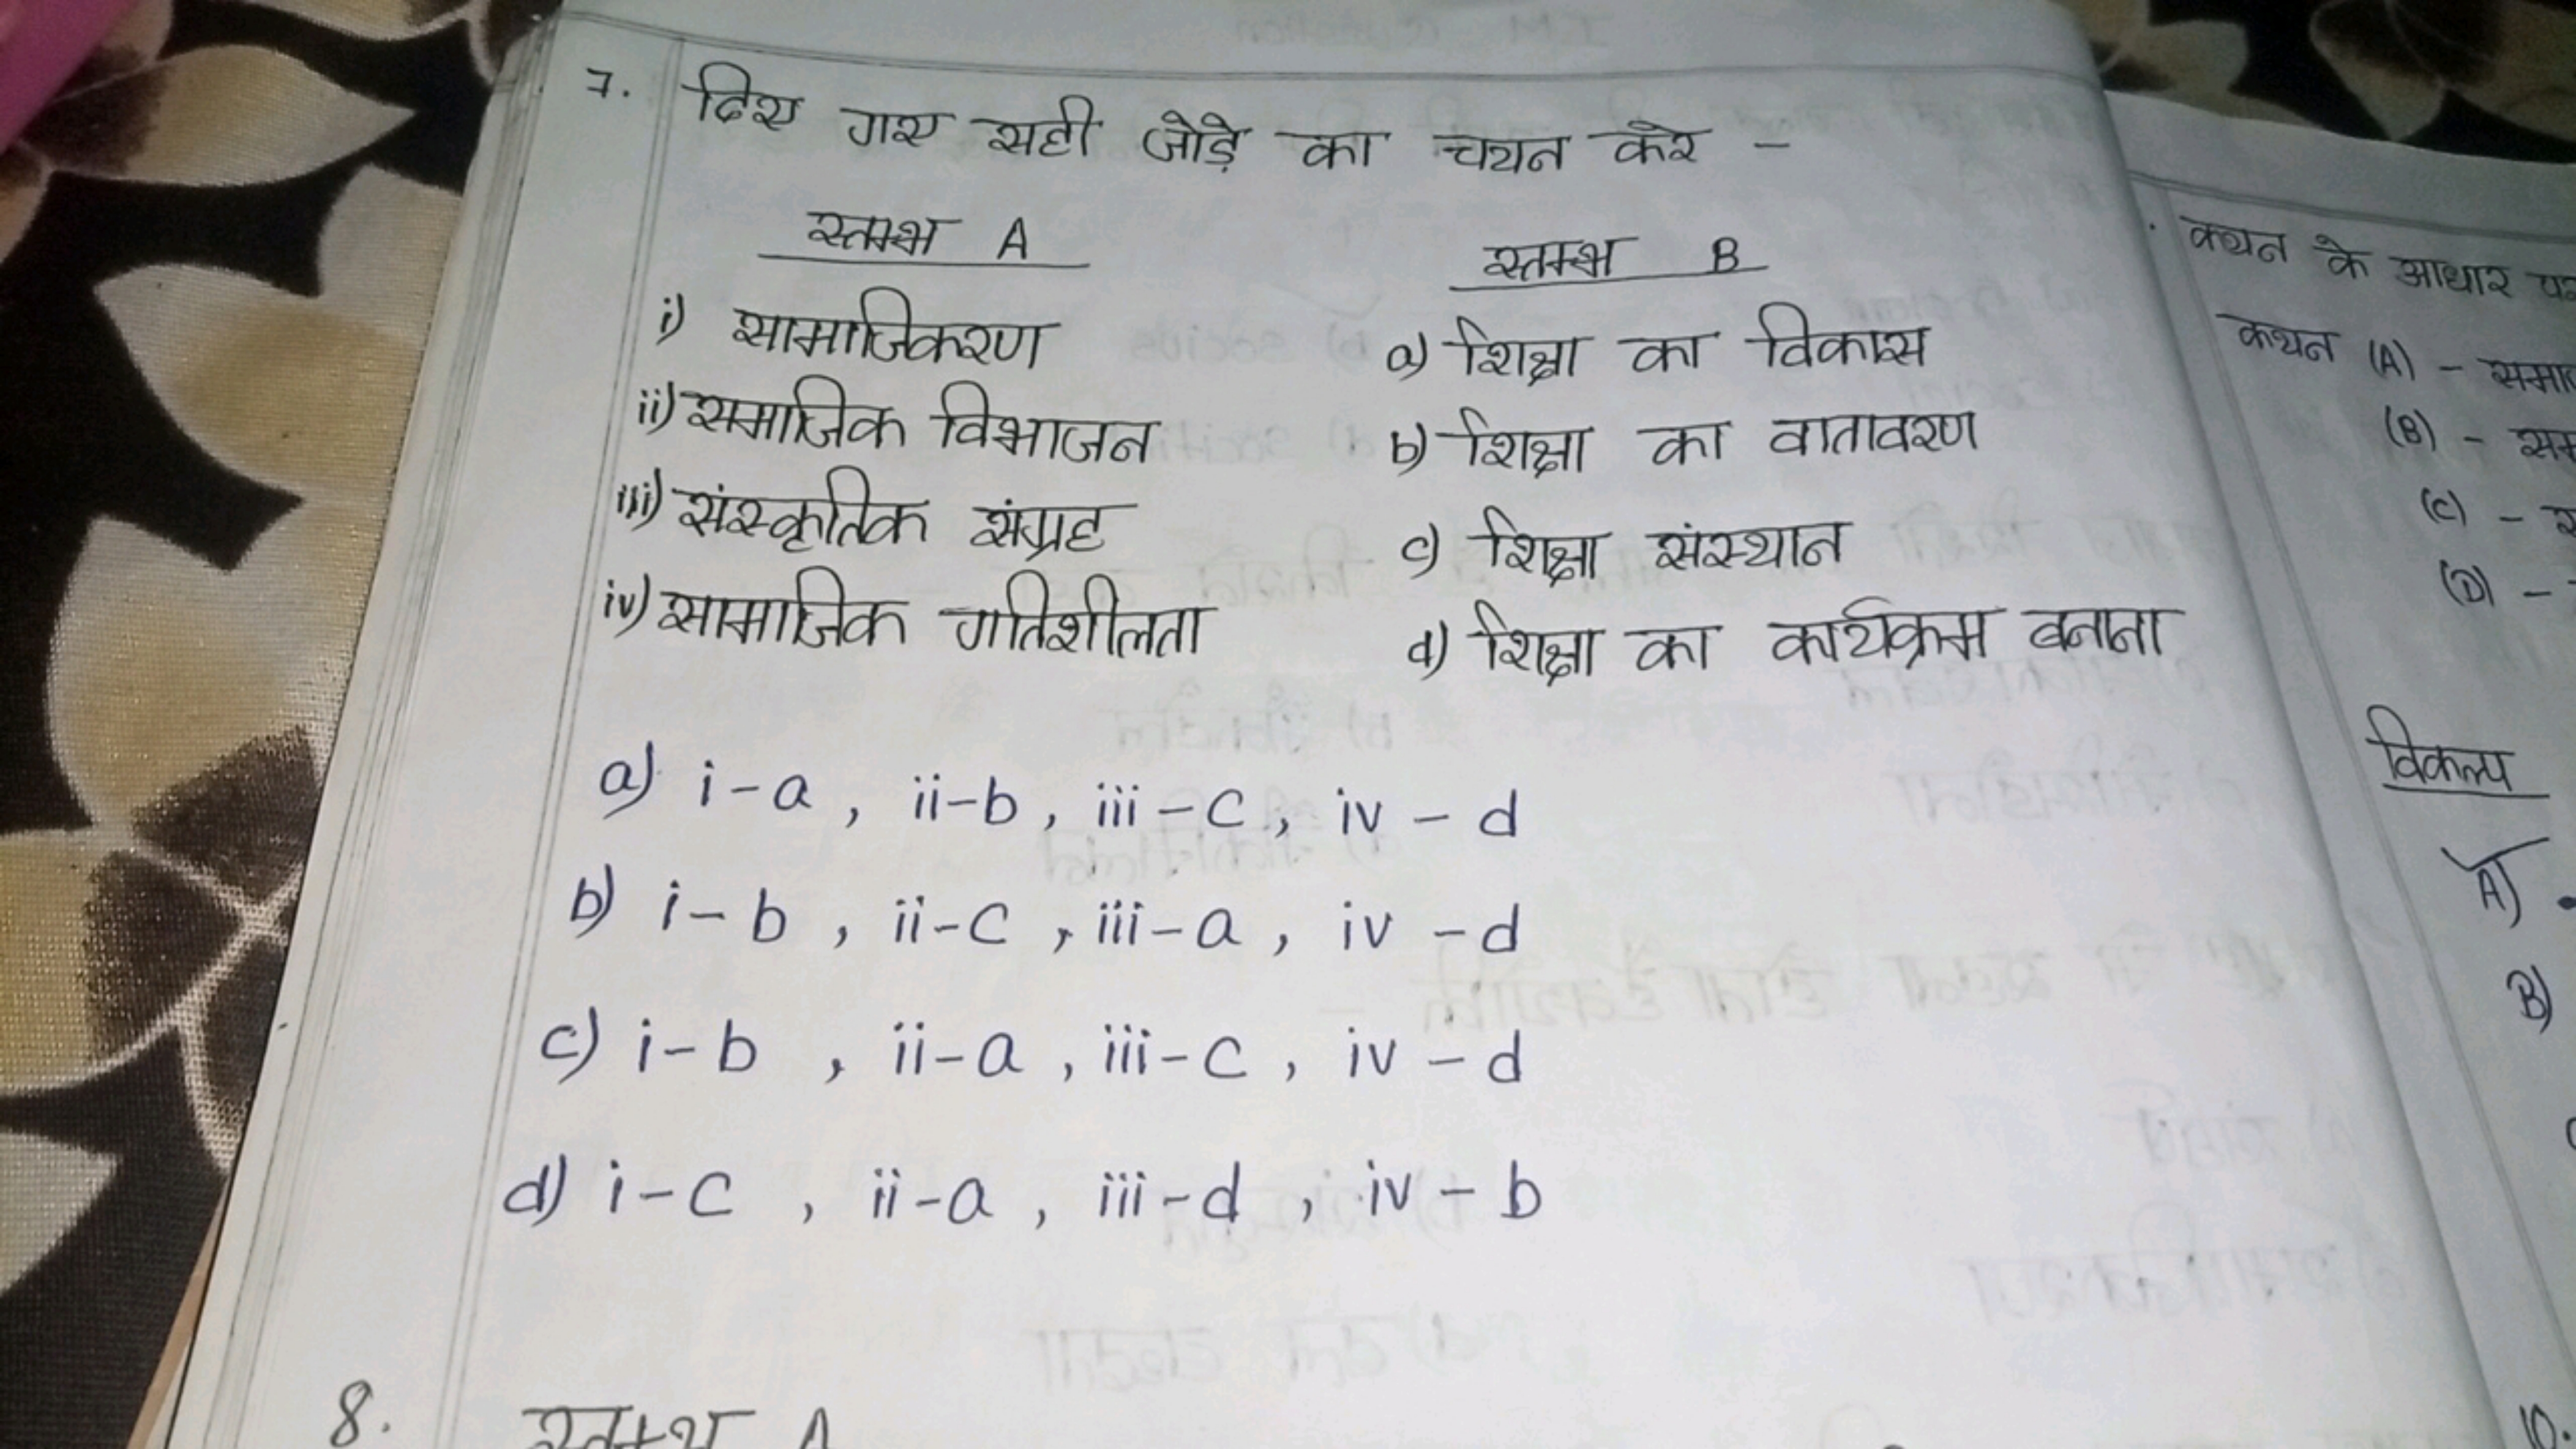 7. दिए गए सही जोड़े का चयन करे -
स्तम्भ A
स्तम्भ B
i) सामाजिकरण
a) शिक्षा का विकास
ii) समाजिक विभाजन
b) शिक्षा का वातावरण
iii) संस्कृतिक संग्रह
c) शिक्षा संस्थान
iv) सामाजिक गतिशीलता
d) शिक्षा का कार्यक्रम बनाना
a) i-a, ii-b, iii-c, iv-d
b) i-b, ii-c, iii-a, iv-d
c) i-b, ii-a, iii-c, iv-d
d) i-c, ii-a, iii-d, iv-b
8. स्तम्भ A
कथन के आधार
कथन (A) -
(B) -
(C) -
(D) -
विकल्प
A)
B)
10.